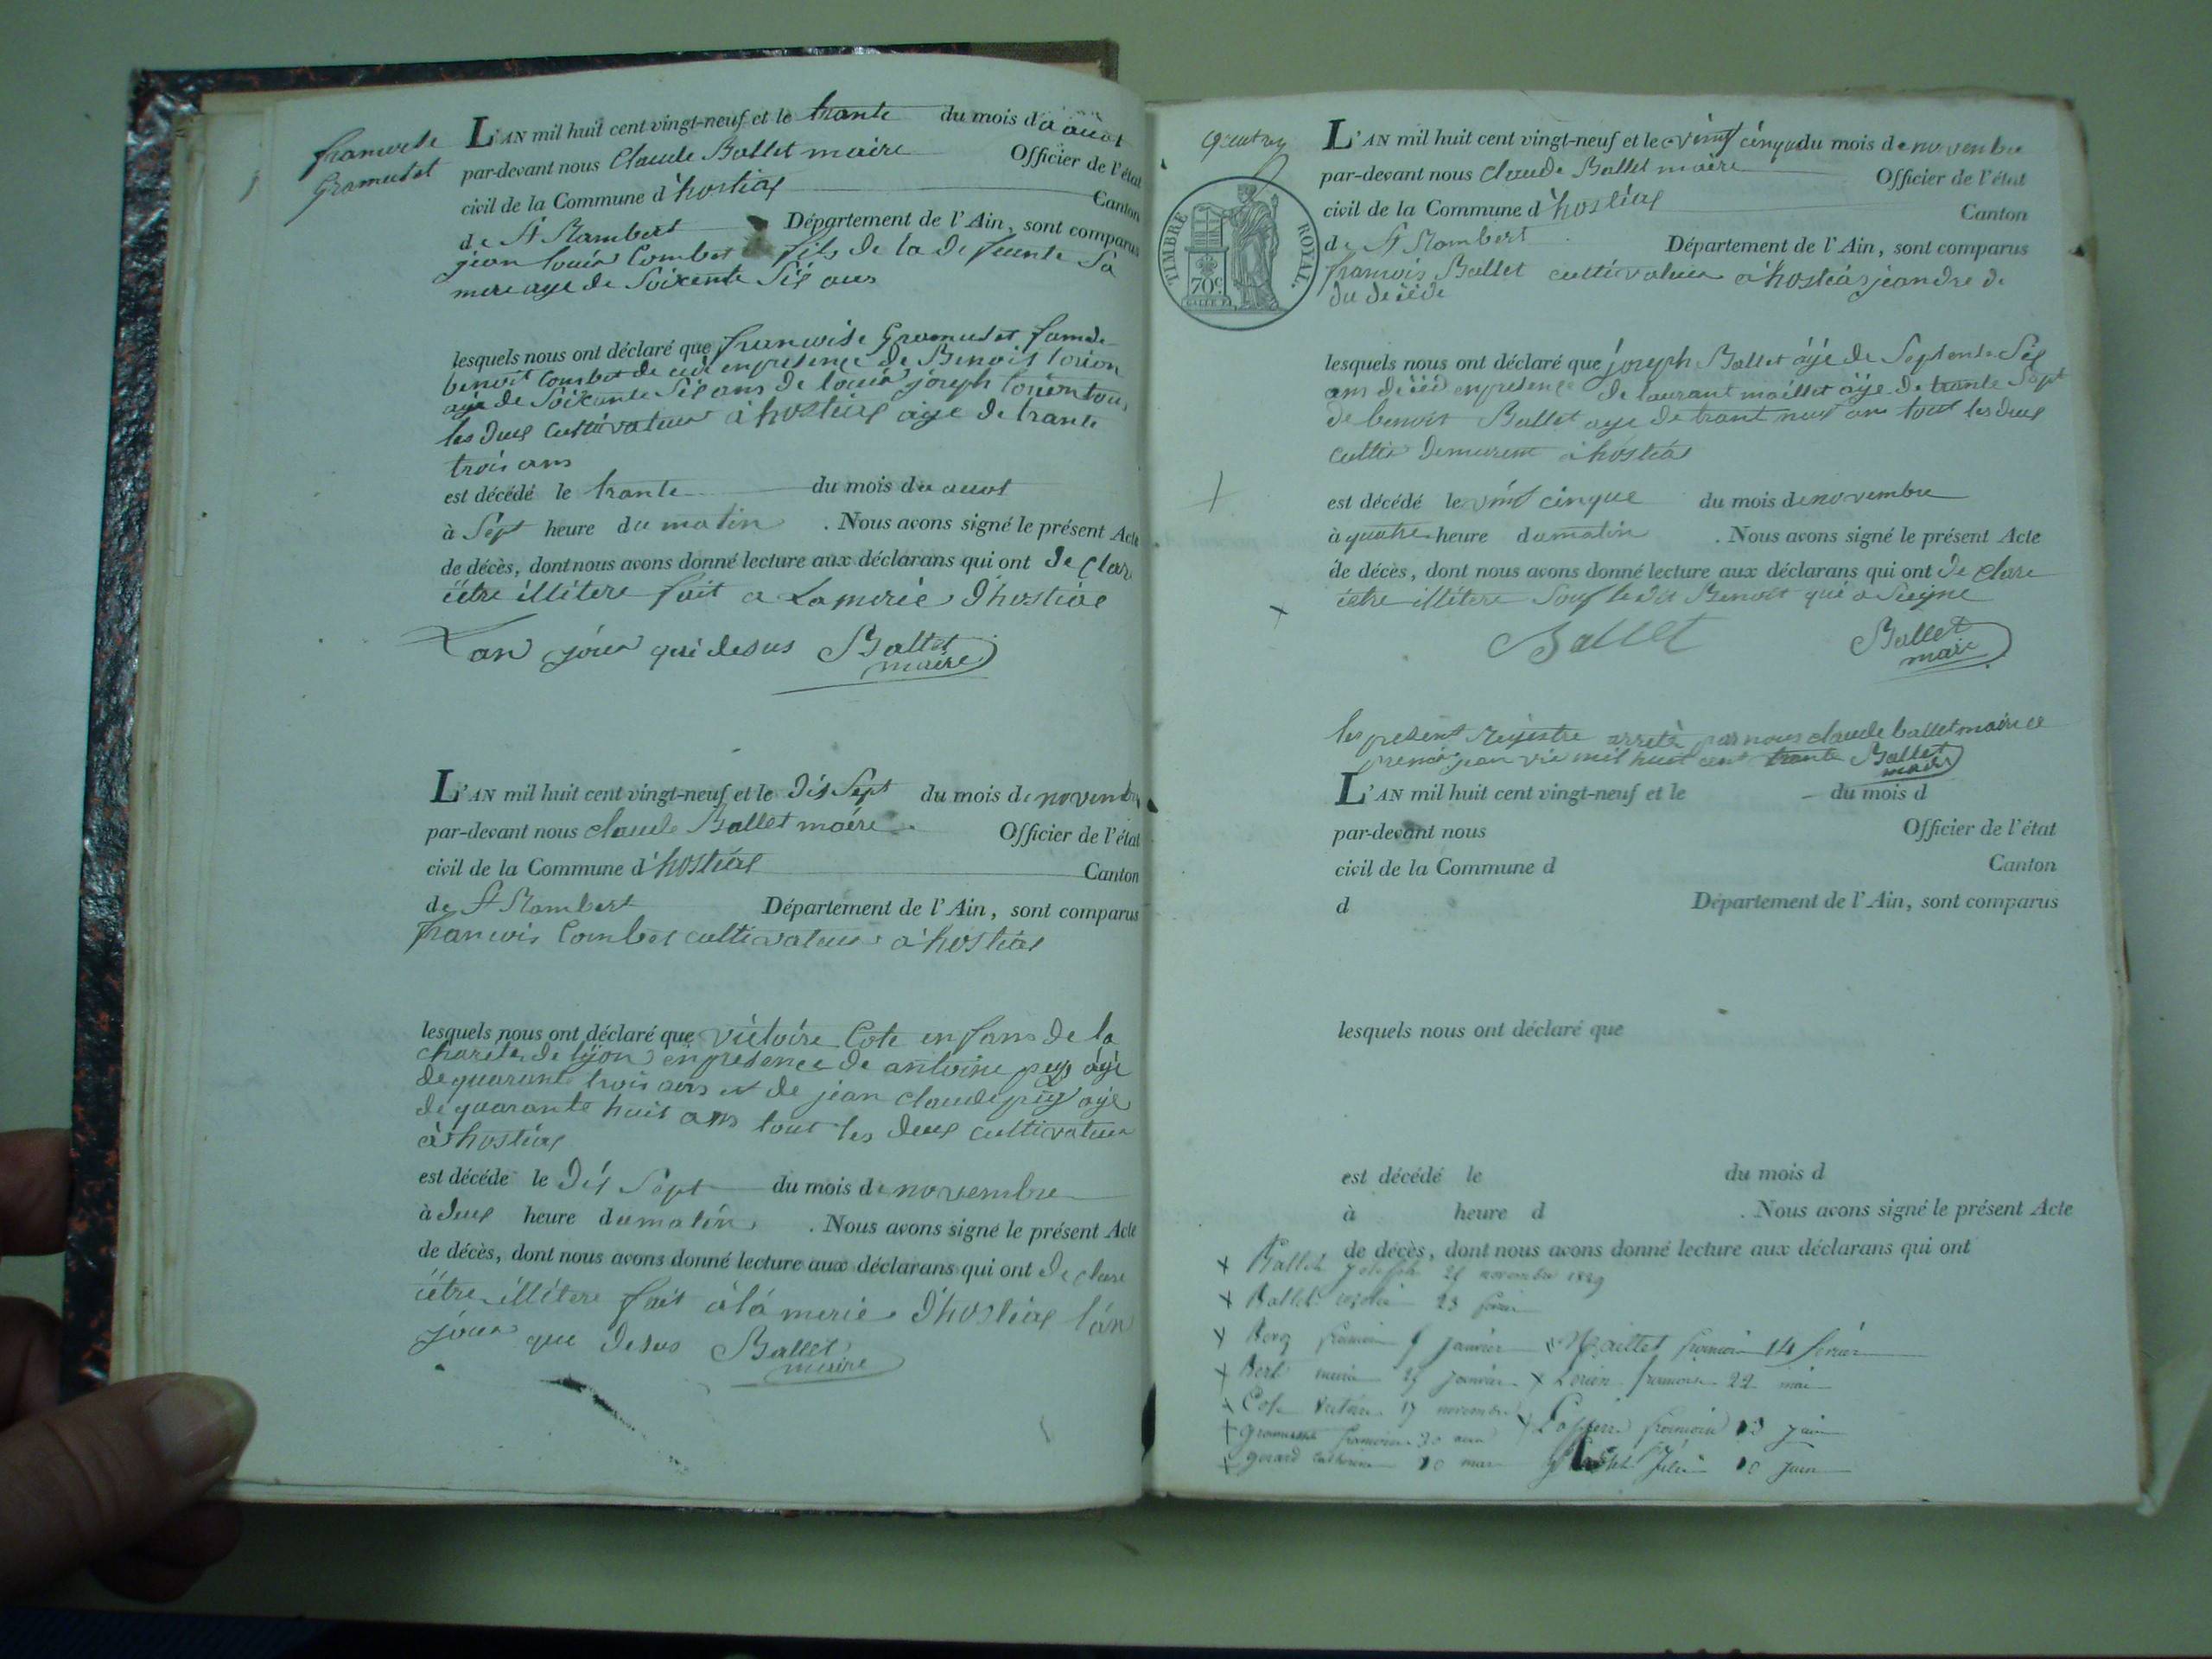 francoise
Gramusset
L'AN mil huit cent vingt-neuf et le trante du mois d'a auot
par-devant nous Claude Ballet maire Officier de l'état
civil de la Commune d'hostias Canton
de St Rambert Département de l'Ain, sont comparus
jean louis Combet fils de la defeunte Sa
mere age de Soixente Sis ans
lesquels nous ont déclaré que francoise Gramuset fame de
benoit Combet en presence de Benoit lorion
age de Soixante Sis ans de louis joseph lorion tous
les deux Cultivateur a hostias age de trante
trois ans
est décédé le trante du mois du auot
à Sept heure du matin . Nous avons signé le présent Acte
de décès, dont nous avons donné lecture aux déclarans qui ont declare
être illitere fait a La merie d'hostias
L'an jour que desus Ballet
maire
L'AN mil huit cent vingt-neuf et le dis Sept du mois de novembre
par-devant nous claude Ballet maire Officier de l'état
civil de la Commune d'hostias Canton
de St Rambert Département de l'Ain, sont comparus
francois Combet cultivateur a hostias
lesquels nous ont déclaré que victoire Cote enfans de la
charite de lyon en presence de antoine pey age
de quarante trois ans et de jean claude pey age
de quarante huit ans tout les deux cultivateur
a hostias
est décédé le dis Sept du mois de novembre
à deux heure du matin . Nous avons signé le présent Acte
de décès, dont nous avons donné lecture aux déclarans qui ont declare
être illitere fait à la merie d'hostias l'an
jour que desus Ballet
maire
L'AN mil huit cent vingt-neuf et le vint cinque du mois de novembre
par-devant nous Claude Ballet maire Officier de l'état
civil de la Commune d'hostias Canton
TIMBRE ROYAL
70 c
de St Rambert Département de l'Ain, sont comparus
francois Ballet cultivateur a hostias jeandre de
du decede
lesquels nous ont déclaré que joseph Ballet age de Septente Sis
ans decede en presence de laurant maillet age de trante Sept
de benoit Ballet age de trant neuf ans tout les deux
cultiv demurent a hostias
est décédé le vint cinque du mois de novembre
à quatre heure du matin . Nous avons signé le présent Acte
de décès, dont nous avons donné lecture aux déclarans qui ont declare
être illitere Souf le dit Benoit que a Signe
Ballet Ballet
maire
les present regestre arreté par nous claude ballet maire le
premier janvie mil huit cent trante Ballet
maire
L'AN mil huit cent vingt-neuf et le du mois d
par-devant nous Officier de l'état
civil de la Commune d Canton
d Département de l'Ain, sont comparus
lesquels nous ont déclaré que
est décédé le du mois d
à heure d . Nous avons signé le présent Acte
de décès, dont nous avons donné lecture aux déclarans qui ont
x Ballet Joseph 25 novembre 1829
x Ballet 28
x Berg janvier x Maillet francois 14 fevrier
x Bert janvier x Lorion francoise 22 mai
x Cote Victoire 17 novembre x francois 13 juin
x gramusset francoise 30
x gerard catherine 10 mars 10 juin